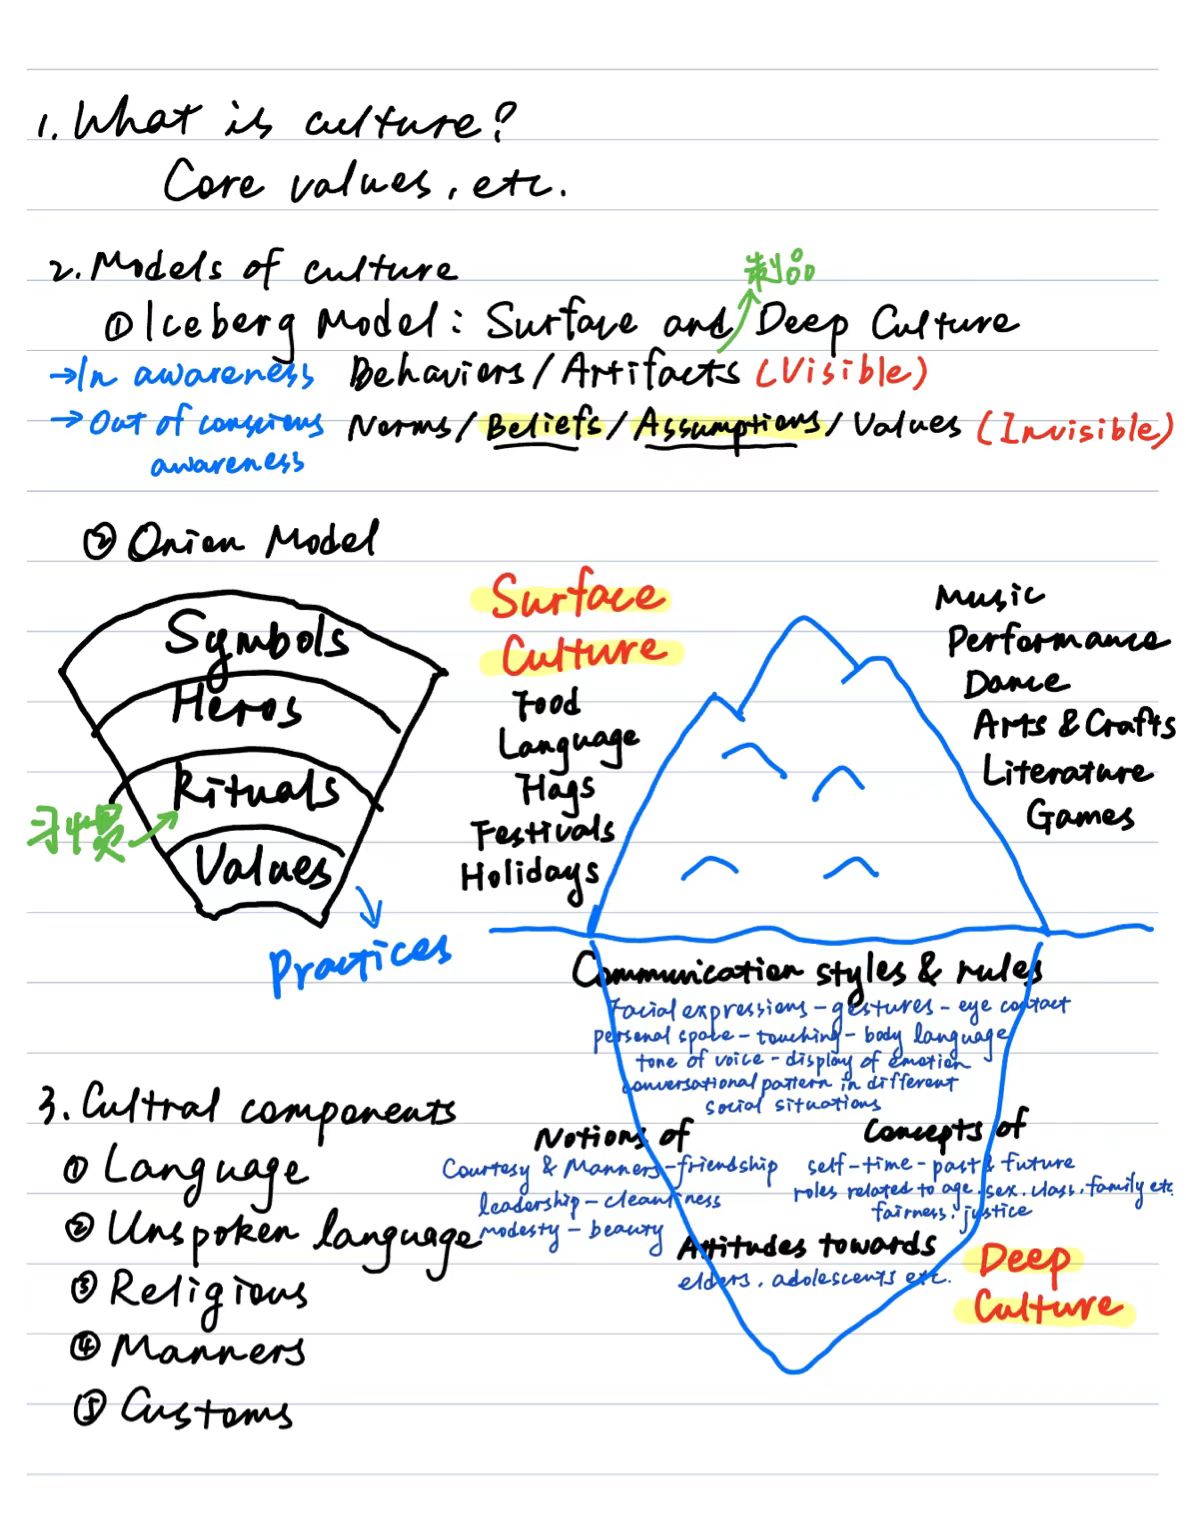 1. What is culture?
Core values, etc.
2. Models of culture
制品
① Iceberg Model: Surface and Deep Culture
→In awareness Behaviors/Artifacts (Visible)
→Out of conscious Norms/Beliefs/Assumptions/Values (Invisible)
awareness
② Onion Model
Symbols
Heros
Rituals
习惯
Values
Practices
Surface
Culture
Food
Language
Hags
Festivals
Holidays
Music
Performance
Dance
Arts & Crafts
Literature
Games
Communication styles & rules
Facial expressions - gestures - eye contact
personal space - touching - body language
tone of voice - display of emotion
conversational pattern in different
social situations
Notions of
Courtesy & Manners - friendship
leadership - cleanliness
modesty - beauty
Concepts of
self - time - past & future
roles related to age, sex, class, family etc
fairness, justice
Attitudes towards
elders, adolescents etc.
Deep
Culture
3. Cultral components
① Language
② Unspoken language
③ Religious
④ Manners
⑤ Customs